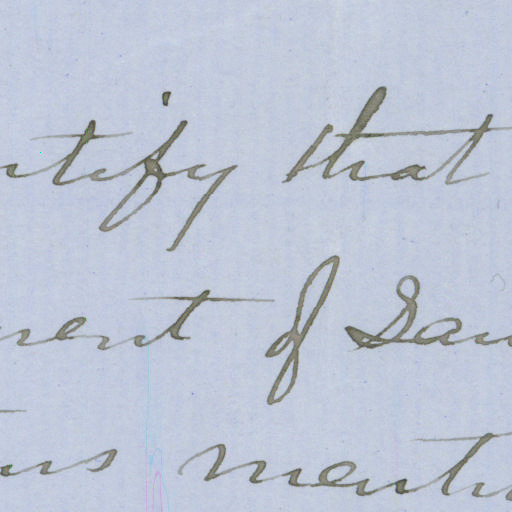 rtify that
ment of San
ms menti